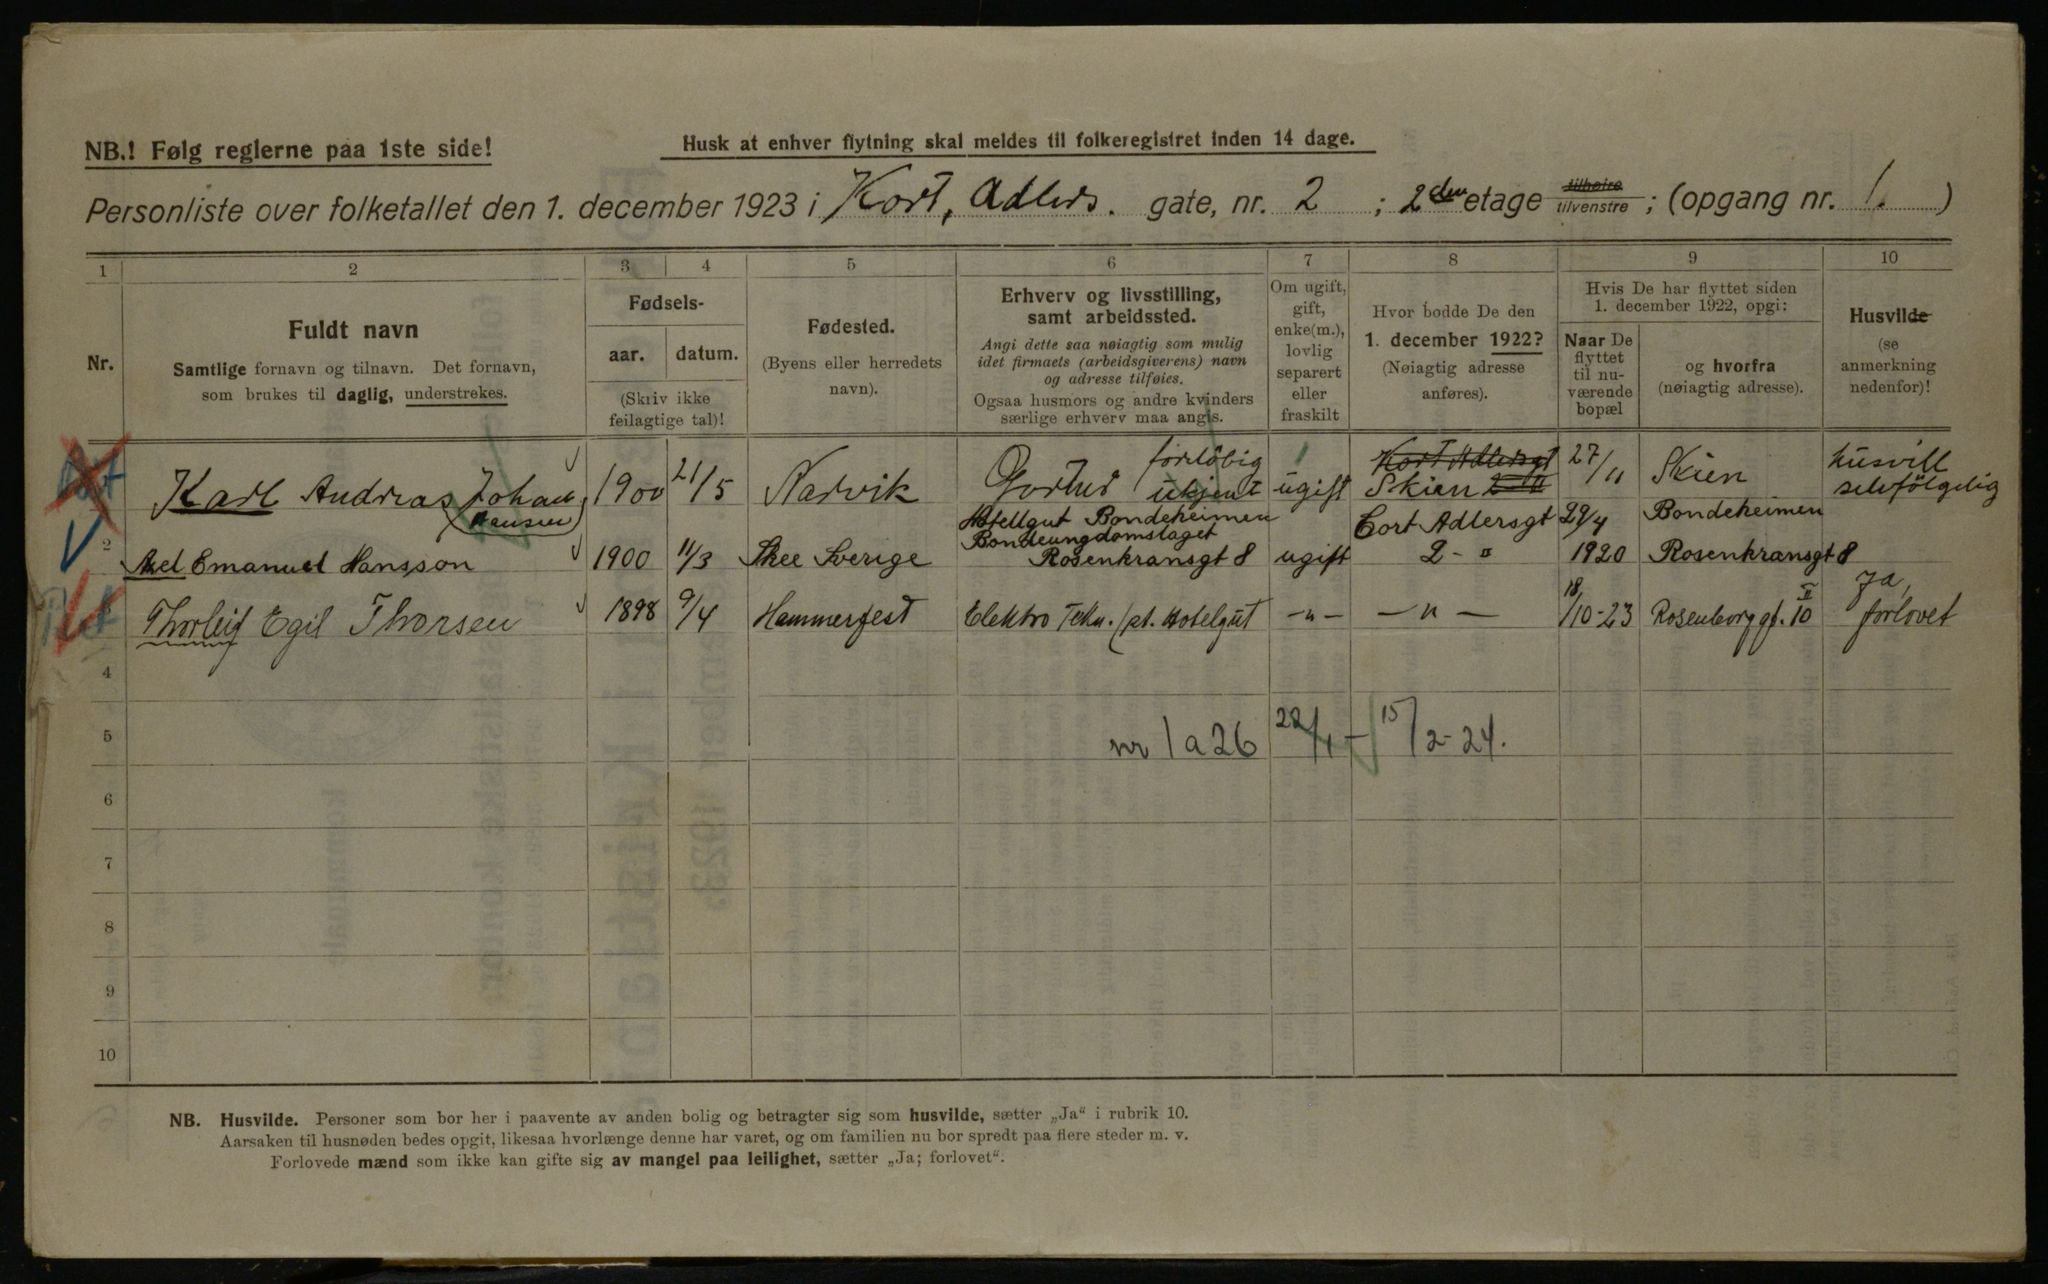 NB.! Følg reglerne paa 1ste side!
Husk at enhver flytning skal meldes til folkeregistret inden 14 dage.
Personliste over folketallet den 1. december 1923 i Kort, Adlers. gate, nr. 2 ; 2den etage tilhøire tilvenstre ; (opgang nr. 1. )
1 2 3 4 5 6 7 8 9 10
Nr.
Fuldt navn
Samtlige fornavn og tilnavn. Det fornavn,
som brukes til daglig, understrekes.
Fødsels-
aar. datum.
(Skriv ikke
feilagtige tal)!
Fødested.
(Byens eller herredets
navn).
Erhverv og livsstilling,
samt arbeidssted.
Angi dette saa nøiagtig som mulig
idet firmaets (arbeidsgiverens) navn
og adresse tilføies.
Ogsaa husmors og andre kvinders
særlige erhverv maa angis.
Om ugift,
gift,
enke(m.),
lovlig
separert
eller
fraskilt
Hvor bodde De den
1. december 1922?
(Nøiagtig adresse
anføres).
Hvis De har flyttet siden
1. december 1922, opgi:
Naar De
flyttet
til nu-
værende
bopæl
og hvorfra
(nøiagtig adresse).
Husvilde
(se
anmerkning
nedenfor)!
Karl Andreas Johan 1900 21/5 Narvik forløbig ukjent ugift Kort Adlersgt Skien 2 II 27/11 Skien husvill selvfölgelig
(Hansen)
2 Axel Emanuel Hansson 1900 11/3 Skee Sverige Hotellgut Bondeheimen Bondeungdomslaget Rosenkransgt 8 ugift Cort Adlersgt 2 - II 29/4 1920 Bondeheimen Rosenkransgt 8
3 Thorleif Egil Thorsen 1898 9/4 Hammerfest Elektro Tekn. (pt. Hotelgut - " - - " - 18/10-23 Rosenborggt. 10 II Ja, forlovet
4
5 nr 1 a 26 22/1 - 15/2-24.
6
7
8
9
10
NB. Husvilde. Personer som bor her i paavente av anden bolig og betragter sig som husvilde, sætter „Ja“ i rubrik 10.
Aarsaken til husnøden bedes opgit, likesaa hvorlænge denne har varet, og om familien nu bor spredt paa flere steder m. v.
Forlovede mænd som ikke kan gifte sig av mangel paa leilighet, sætter „Ja; forlovet“.